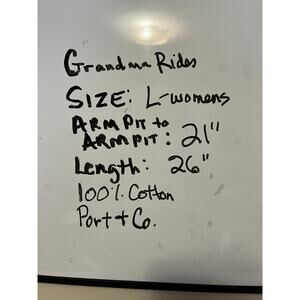 Grandma Rides
SIZE: L-womens
ARMPIT to
ARMPIT: 21"
Length: 26"
100% Cotton
Port & Co.